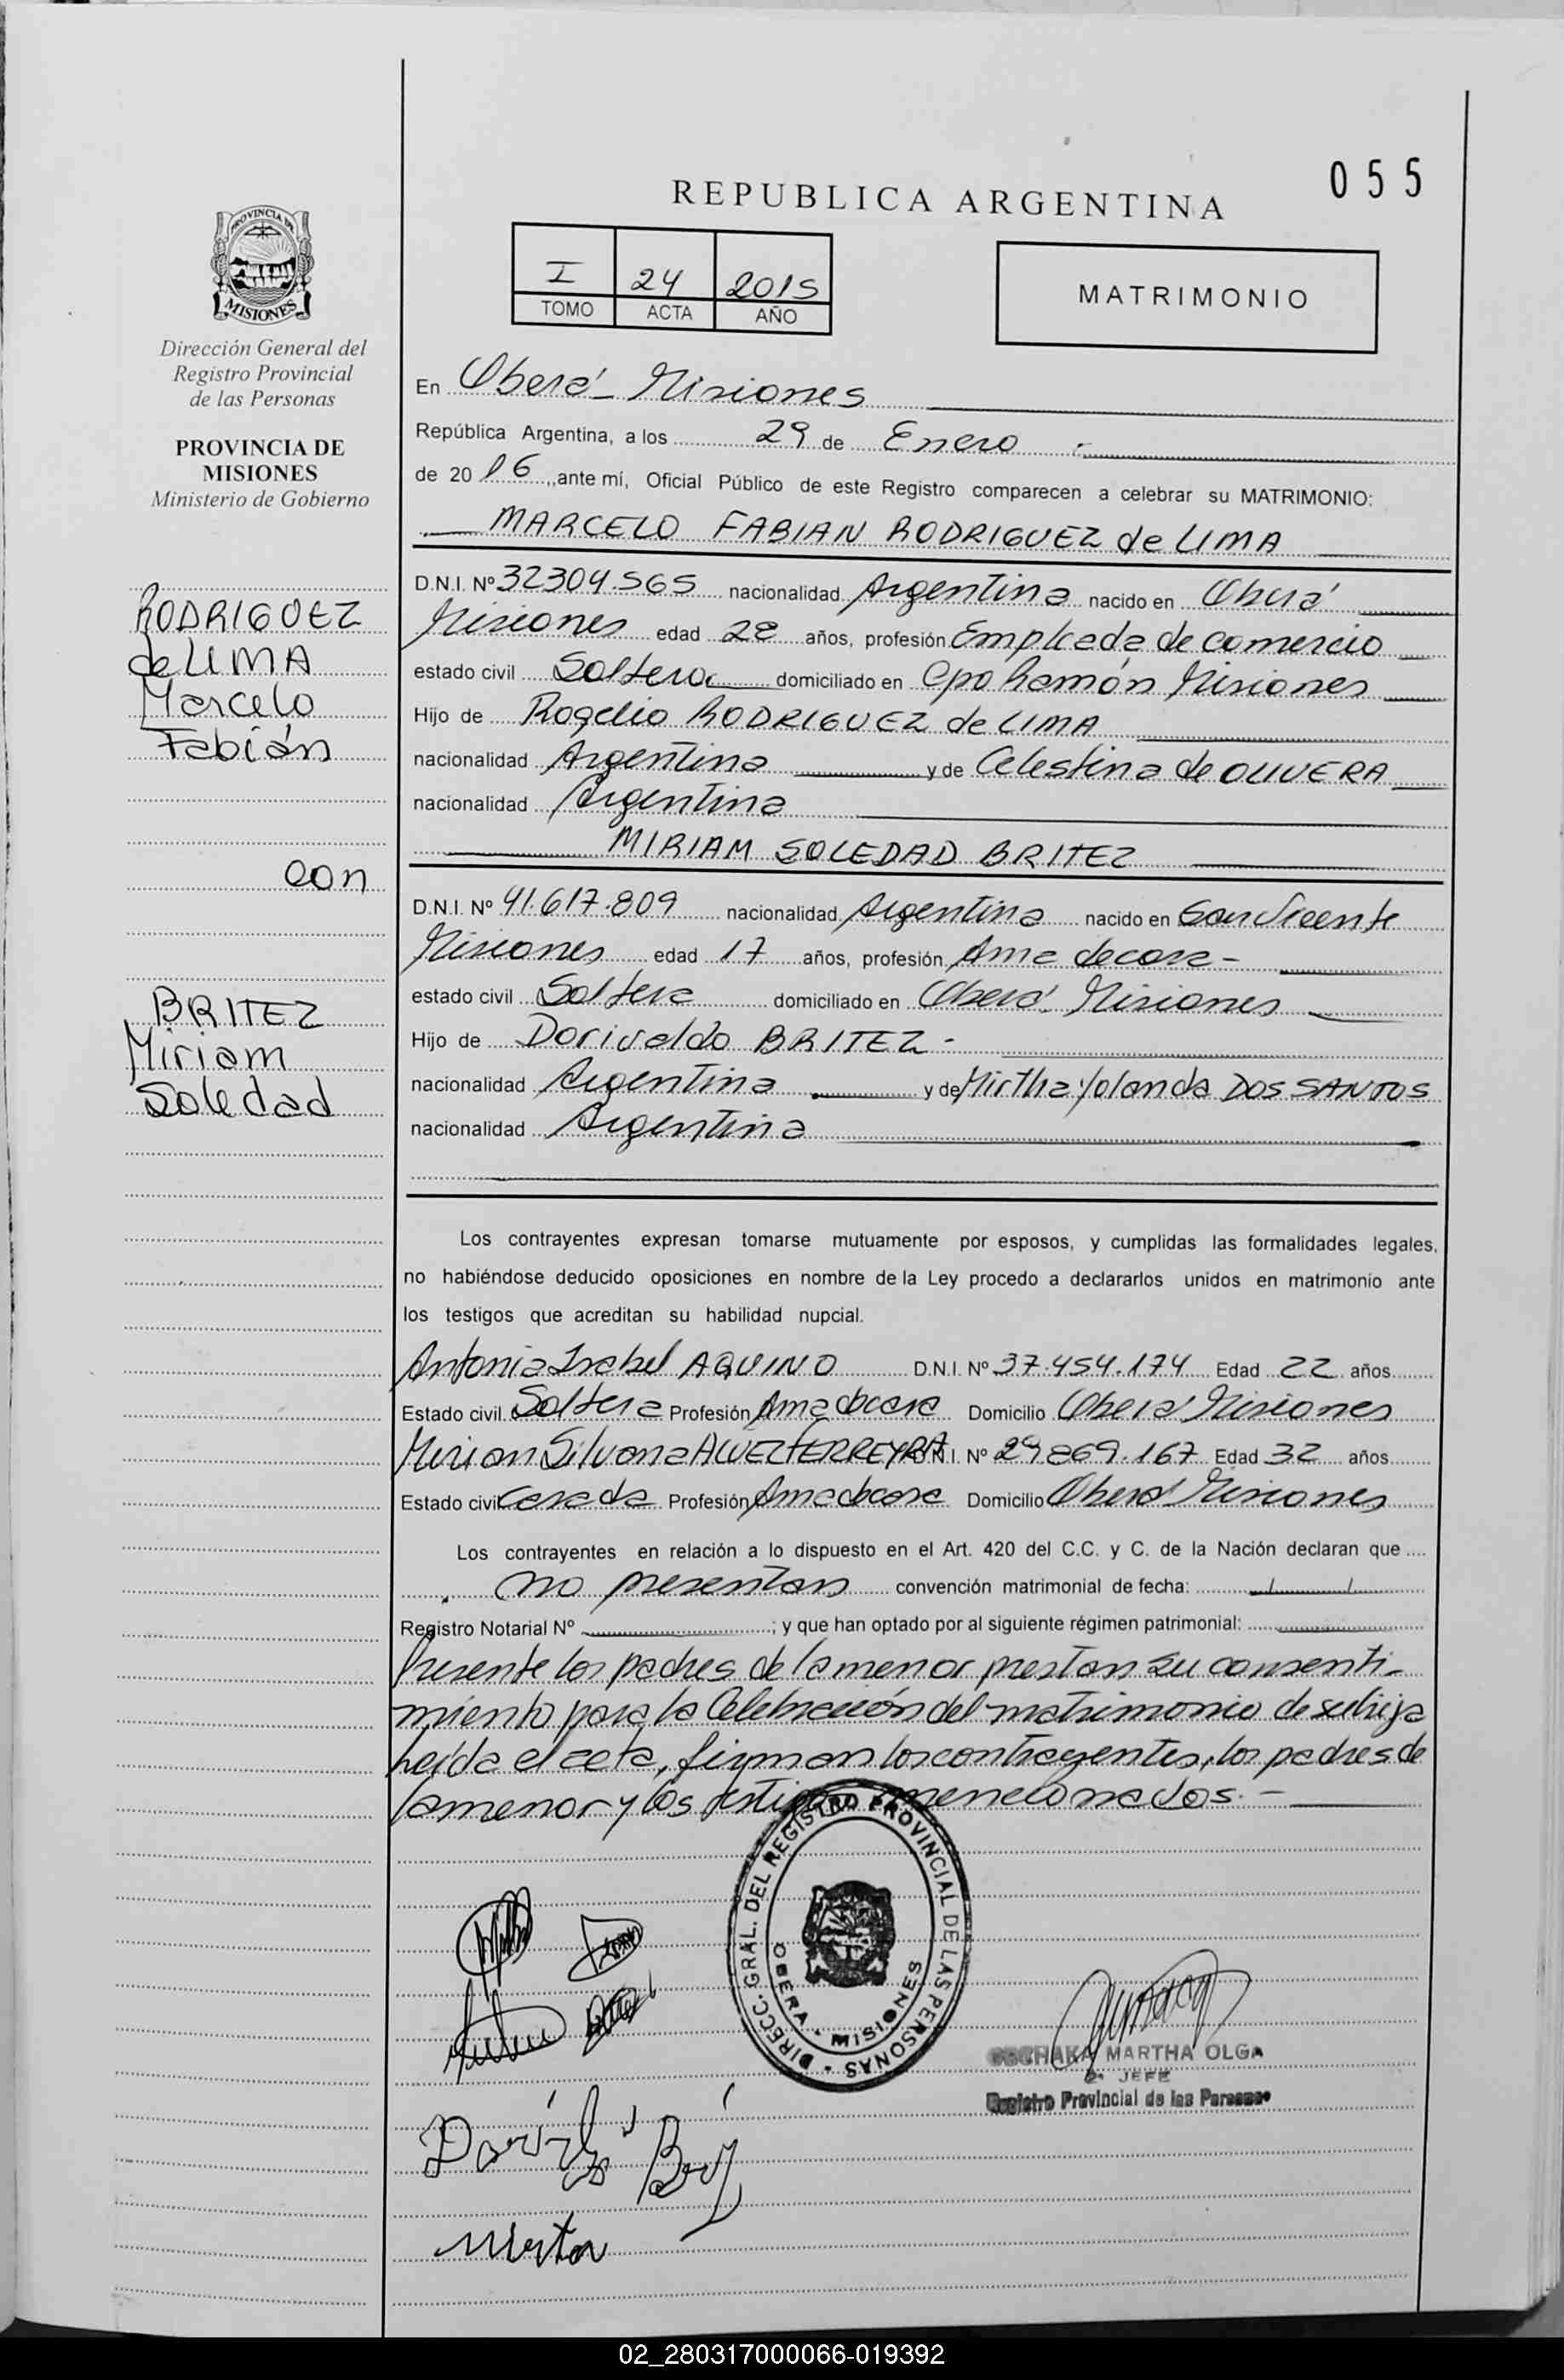 055
REPUBLICA ARGENTINA
I 24 2015
TOMO ACTA AÑO
MATRIMONIO
PROVINCIA DE
MISIONES
Dirección General del
Registro Provincial
de las Personas
PROVINCIA DE
MISIONES
Ministerio de Gobierno
RODRIGUEZ
de LIMA
Marcelo
Fabián
con
BRITEZ
Miriam
Soledad
En Oberá - Misiones
República Argentina, a los 29 de Enero
de 2016, ante mí, Oficial Público de este Registro comparecen a celebrar su MATRIMONIO:
MARCELO FABIAN RODRIGUEZ de LIMA
D.N.I. Nº 32304.565 nacionalidad Argentina nacido en Oberá
Misiones edad 28 años, profesión Empleada de comercio
estado civil Soltero domiciliado en Cpo Ramón Misiones
Hijo de Rogelio RODRIGUEZ de LIMA
nacionalidad Argentina y de Celestina de OLIVERA
nacionalidad Argentina
MIRIAM SOLEDAD BRITEZ
D.N.I. Nº 41.617.809 nacionalidad Argentina nacido en San Vicente
Misiones edad 17 años, profesión Ama de casa -
estado civil Soltera domiciliado en Oberá Misiones
Hijo de Dorivaldo BRITEZ -
nacionalidad Argentina y de Mirtha Yolanda DOS SANTOS
nacionalidad Argentina
Los contrayentes expresan tomarse mutuamente por esposos, y cumplidas las formalidades legales,
no habiéndose deducido oposiciones en nombre de la Ley procedo a declararlos unidos en matrimonio ante
los testigos que acreditan su habilidad nupcial.
Antonia Isabel AQUINO D.N.I. Nº 37.454.174 Edad 22 años
Estado civil Soltera Profesión Ama de casa Domicilio Oberá Misiones
Mirian Silvana ALVEZ FERREYRA D.N.I. Nº 29869.167 Edad 32 años
Estado civil Casada Profesión Ama de casa Domicilio Oberá Misiones
Los contrayentes en relación a lo dispuesto en el Art. 420 del C.C. y C. de la Nación declaran que
no presentan convención matrimonial de fecha: / /
Registro Notarial Nº ; y que han optado por al siguiente régimen patrimonial:
Presente los padres de la menor prestan su consenti-
miento para la Celebración del matrimonio de su hija
heída el acta, firman los contrayentes, los padres de
la menor y los testigos mencionados. -
DIRECC. GRAL. DEL REGISTRO PROVINCIAL DE LAS PERSONAS
OBERA - MISIONES
MARTHA OLGA
2º JEFE
Registro Provincial de las Personas
Mirta
02_280317000066-019392